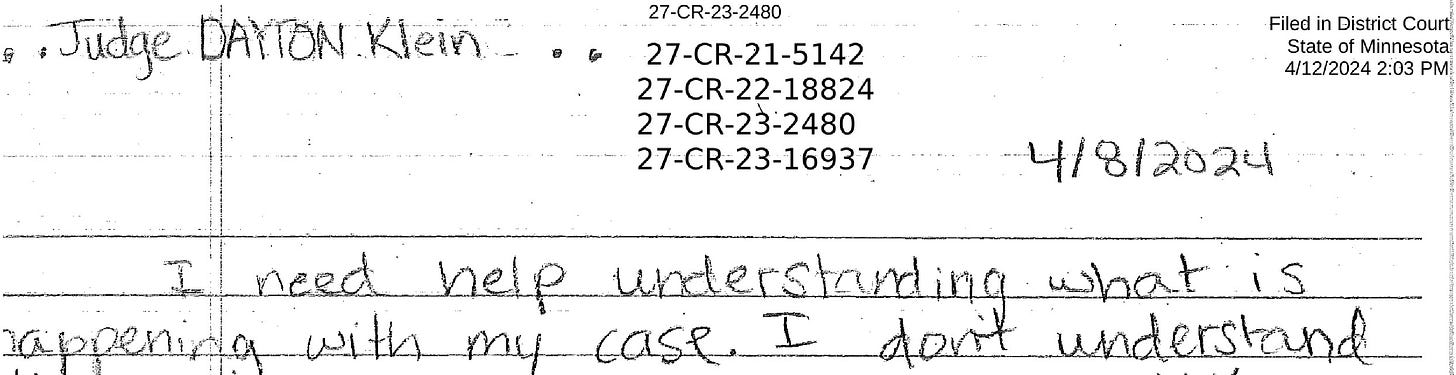 27-CR-23-2480
Filed in District Court
State of Minnesota
4/12/2024 2:03 PM
Judge DAYTON Klein
27-CR-21-5142
27-CR-22-18824
27-CR-23-2480
27-CR-23-16937
4/8/2024
I need help understanding what is
happening with my case. I don't understand